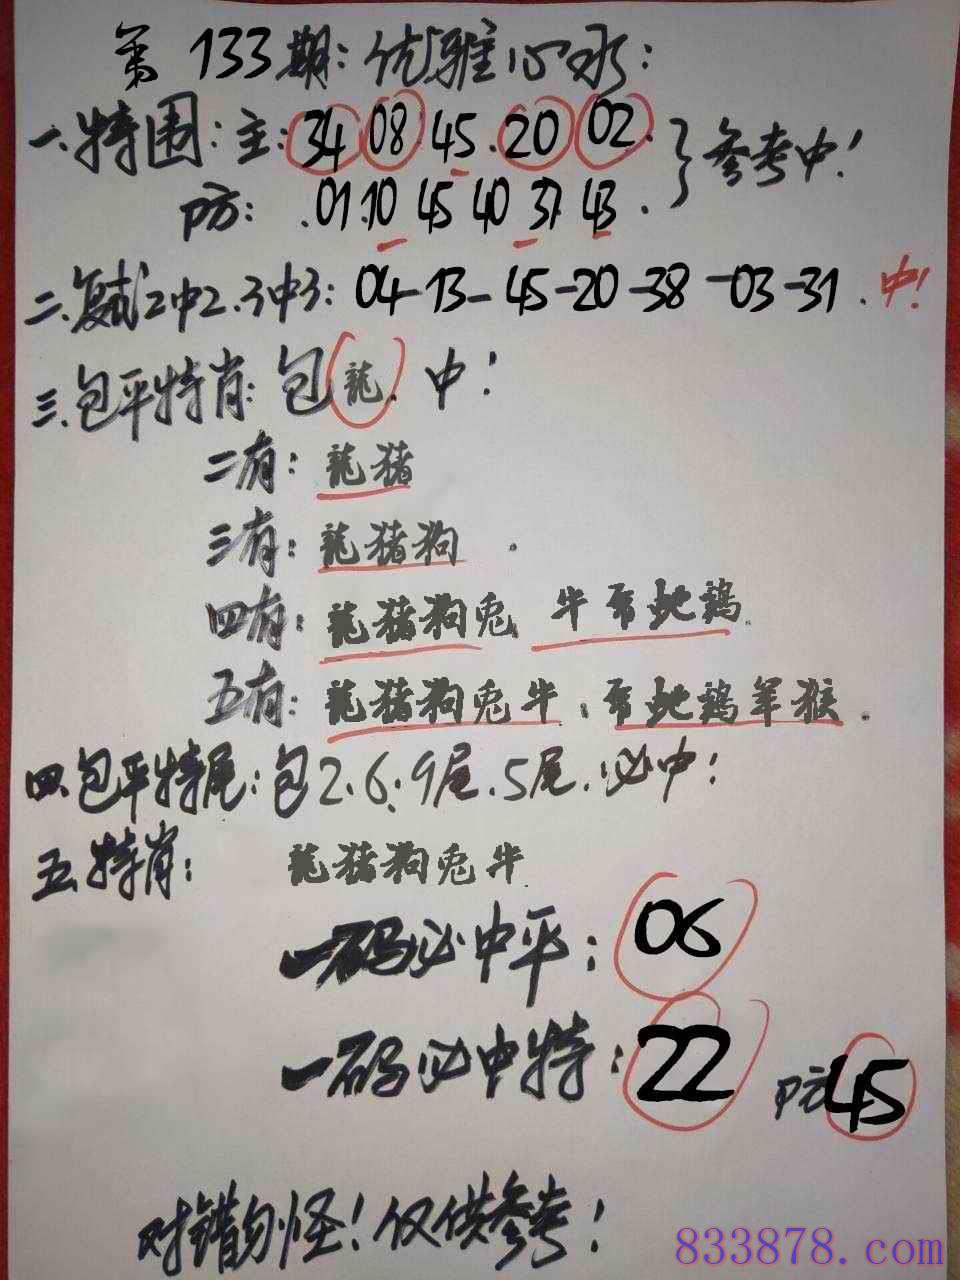 第133期:优雅心水:
一.特围:主:34 08.45.20 02.}参考中!
防: .01.10 45 40 37 43.
二.复试2中2.3中3:04-13-45-20-38-03-31.中!
三.包平特肖:包龍.中!
二有:龍猪
三有:龍猪狗.
四有:龍猪狗兎 牛 蛇鷄.
五有:龍猪狗兎牛. 蛇鷄羊猴.
四.包平特尾:包2.6.9尾.5尾.必中!
五.特肖: 龍猪狗兎牛.
一码必中平:06
一码必中特:22 防45
对错勿怪!仅供参考!
833878.com